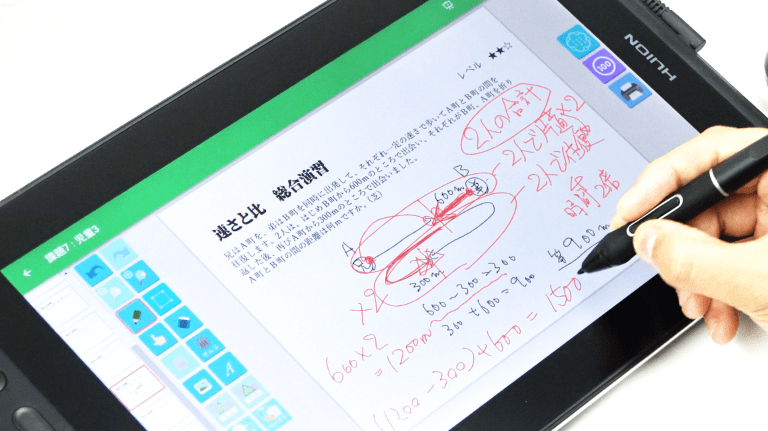 HUION
課題7：児童3
レベル ★★☆
速さと比 総合演習
兄はA町を、弟はB町を同時に出発して、それぞれ一定の速さで歩いてA町とB町の間を
往復します。2人は、はじめB町から600mのところで出会い、それぞれがB町、A町を折り
返した後、再びA町から300mのところで出会いました。
A町とB町の間の距離は何mですか。(芝)
2人の合計
2人で片道×2
2人で往復
時間2倍
A
B
600m
300m
×2
600-300=300
300+600=900
答 900m
600×2
=1200m
(1200-300)+600=1500
100
A